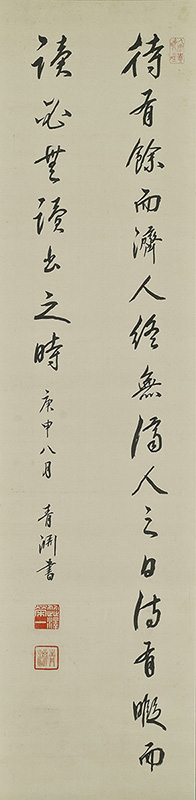 待有餘而濟人終無濟人之日待有暇而
讀必無讀書之時 庚申八月 青淵書